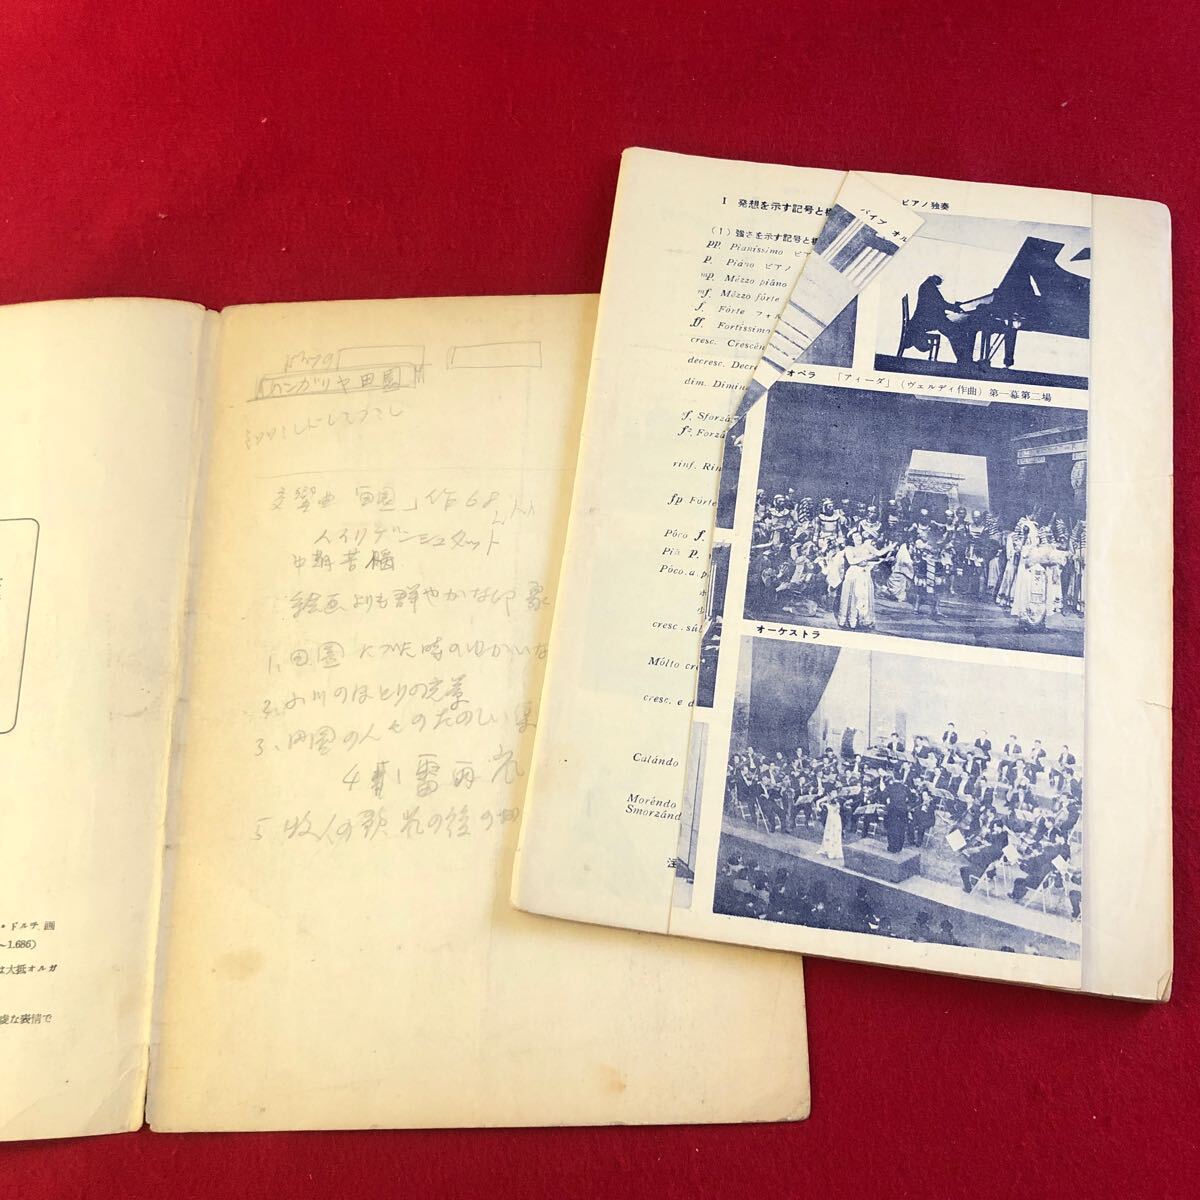 ・ドルチ 画
~1.686)
は大抵オルガ
虔な表情で
ハンガリヤ田園
交響曲「田園」作68
ハイリゲンシュタット
絵画よりも鮮やかな印象
1. 田園 についた時のゆかいな
2. 小川のほとりの光景
3. 田園の人々のたのしい集
4 雷雨 嵐
5. 牧人の歌 嵐の後の
I 発想を示す記号と標
(1) 強さを示す記号と標
pp. Pianissimo ピア
p. Piáno ピアノ
mp. Mézzo piáno
mf. Mézzo fórte
f. Fórte フォル
ff. Fortissimo
cresc. Crescén
decresc. Decre
dim. Diminu
sf. Sforzá
fz. Forzá
rinf. Rin
fp Fórte
Póco f.
Piá p.
Póco.a p
cresc .súb
Mólto cre
cresc. e d
Calándo
Moréndo
Smorzánd
注
パイプ オル
ピアノ独奏
オペラ 「アイーダ」(ヴェルディ作曲)第一幕第二場
オーケストラ